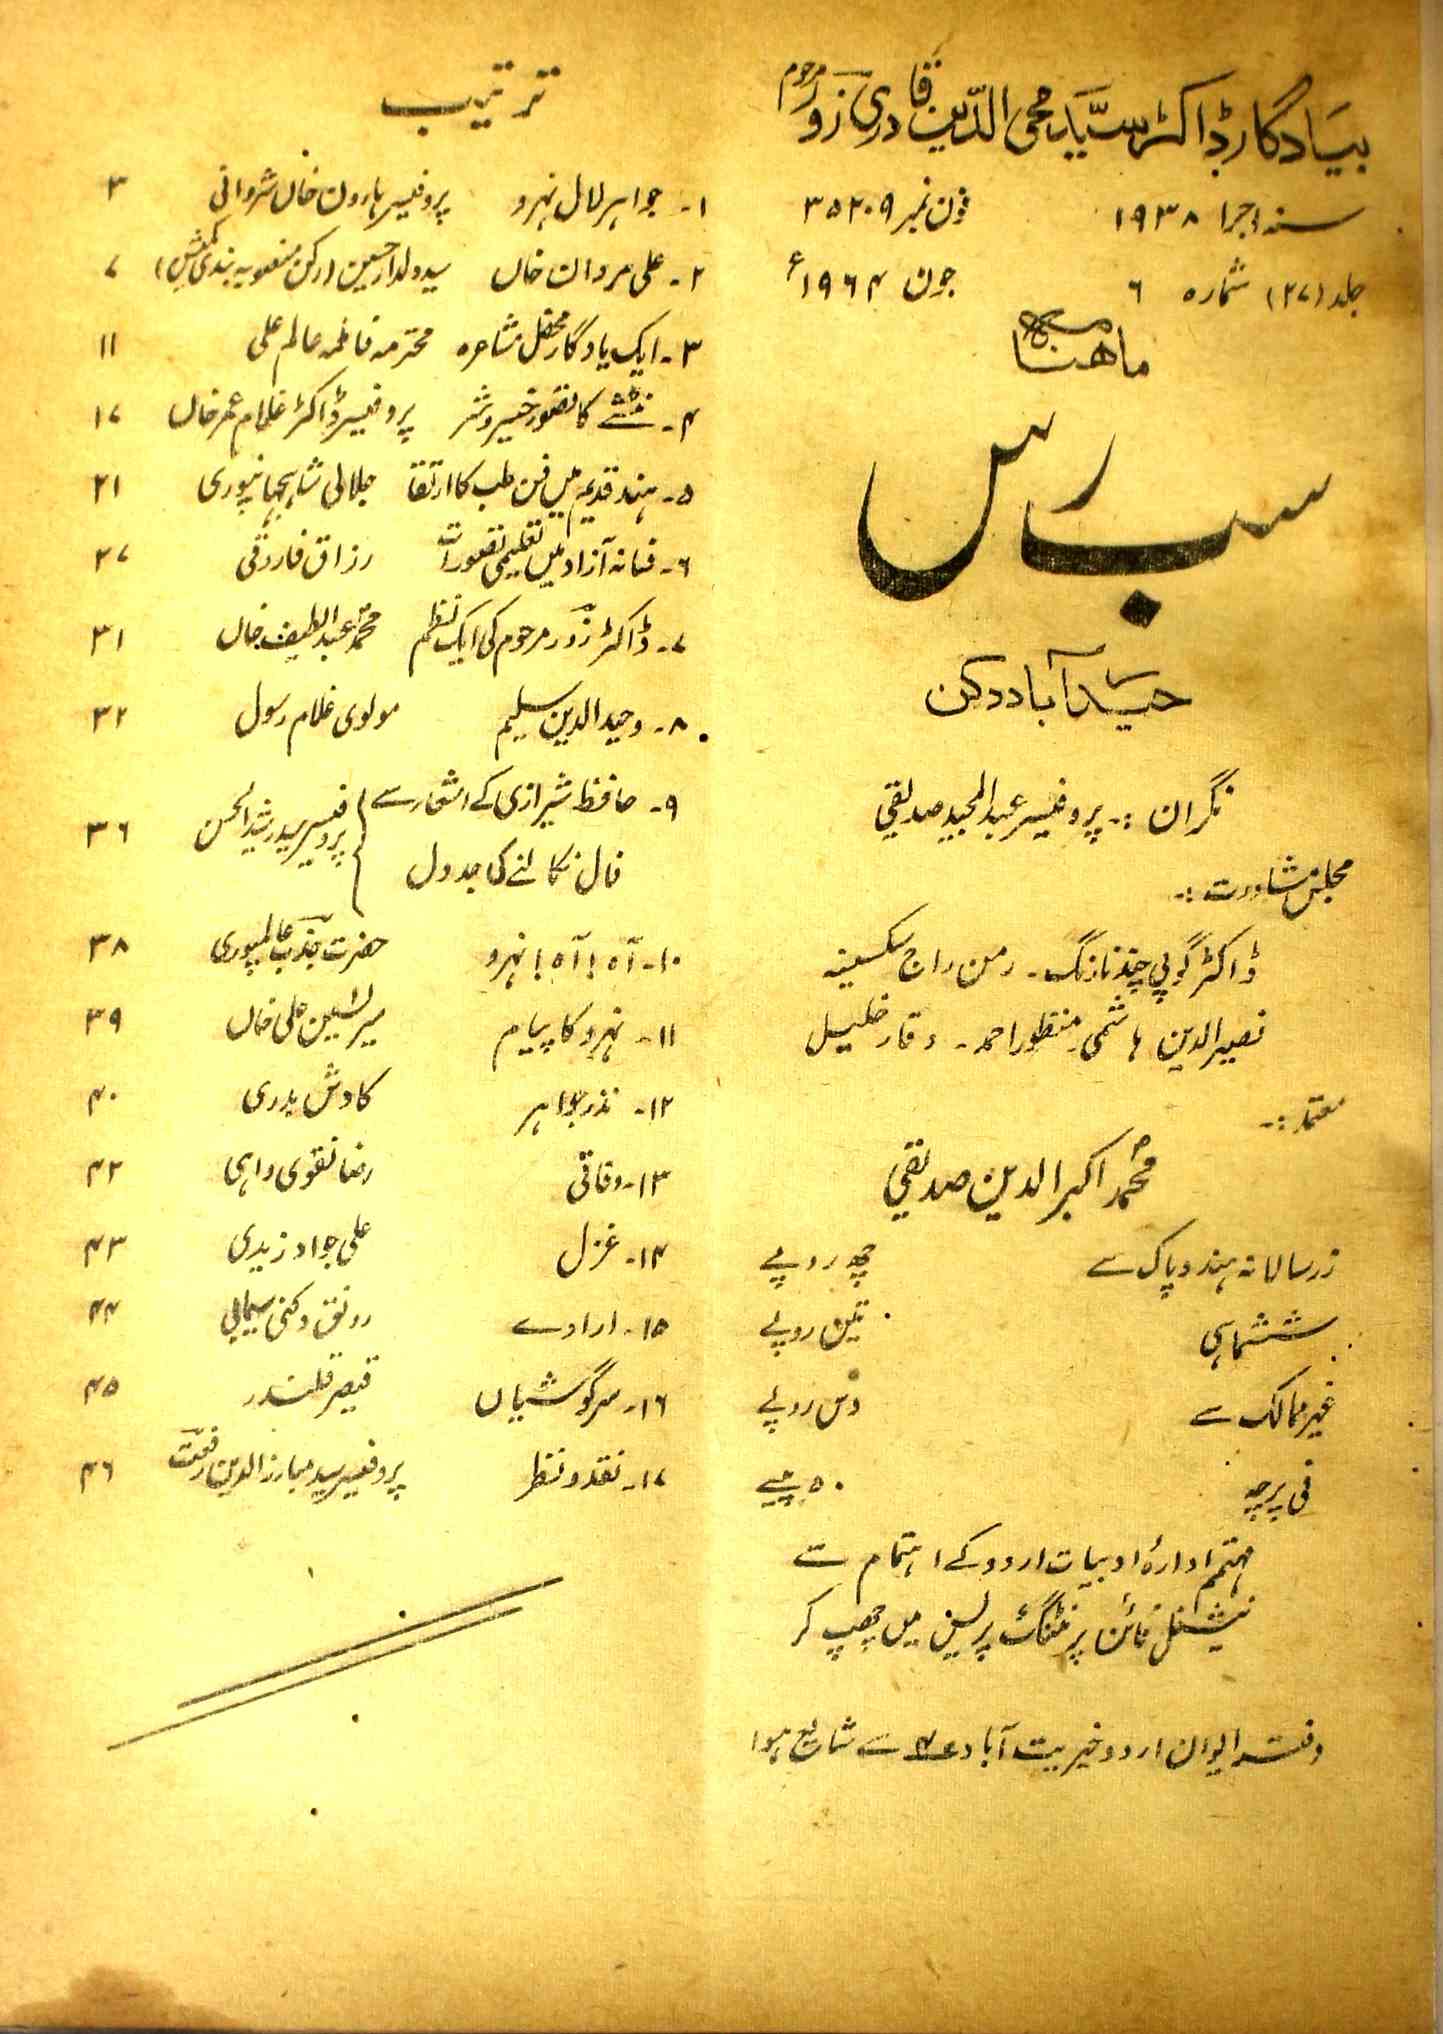 بیادگار ڈاکٹر سیّد محی الدّین قادری زورؔ مرحوم
سنہ اجرا ۱۹۳۸ فون نمبر ۳۵۲۰۹
جلد (۲۷) شمارہ ۶ جون ۱۹۶۴ء
ماھنامہ
سب رس
حیدرآباد دکن
نگران :۔ پروفیسر عبدالمجید صدیقی
مجلس مشاورت :۔
ڈاکٹر گوپی چند نارنگ ۔ رمن راج سکسینہ
نصیرالدین ہاشمی ۔ منظور احمد ۔ وقار خلیل
معتمد :۔
محمد اکبرالدین صدیقی
زر سالانہ ہند و پاک سے چھ روپے
ششماہی تین روپے
غیر ممالک سے دس روپے
فی پرچہ ۵۰ پیسے
مہتمم ادارۂ ادبیات اردو کے اہتمام سے
نیشنل فائن پرنٹنگ پریس میں چھپ کر
دفتر ایوان اردو خیریت آباد ۴ سے شایع ہوا
ترتیب
۱۔ جواہر لال نہرو پروفیسر ہارون خاں شروانی ۳
۲۔ علی مردان خاں سید ولدار حسین (رکن منصوبہ بندی کمیشن) ۷
۳۔ ایک یادگار محفل مشاعرہ محترمہ فاطمہ عالم علی ۱۱
۴۔ نٹشے کا تصور خیر و شر پروفیسر ڈاکٹر غلام عمر خاں ۱۷
۵۔ ہند قدیم میں فن طب کا ارتقا جلالی شاہجہانپوری ۲۱
۶۔ فسانہ آزاد میں تعلیمی تصورات رزاق فاروقی ۲۷
۷۔ ڈاکٹر زورؔ مرحوم کی ایک نظم محمد عبداللطیف خاں ۳۱
۸۔ وحید الدین سلیم مولوی غلام رسول ۳۲
۹۔ حافظ شیرازی کے اشعار سے
فال نکالنے کی جدول پروفیسر سید رشید الحسن ۳۶
۱۰۔ آہ! آہ! نہرو حضرت جذبؔ عالمپوری ۳۸
۱۱۔ نہرو کا پیام میر یٰسین علی خاں ۳۹
۱۲۔ نذر جواہر کاوش بدری ۴۰
۱۳۔ وفاقی رضا نقوی واہی ۴۲
۱۴۔ غزل علی جواد زیدی ۴۳
۱۵۔ ارادے رونق دکنی سیمابی ۴۴
۱۶۔ سرگوشیاں قیصر قلندر ۴۵
۱۷۔ نقد و نظر پروفیسر سید مبارزالدین رفعتؔ ۴۶